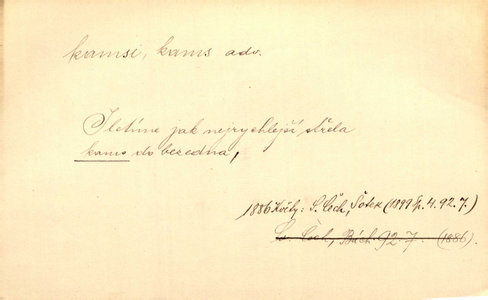 kamsi, kams adv.
I letíme jak nejrychlejší střela
kams do bezedna,
1886 Květy: S. Čech, Šotek (1899 Sp. 4. 92. 7.)
Sv. Čech, Bách. 92. 7. (1886).